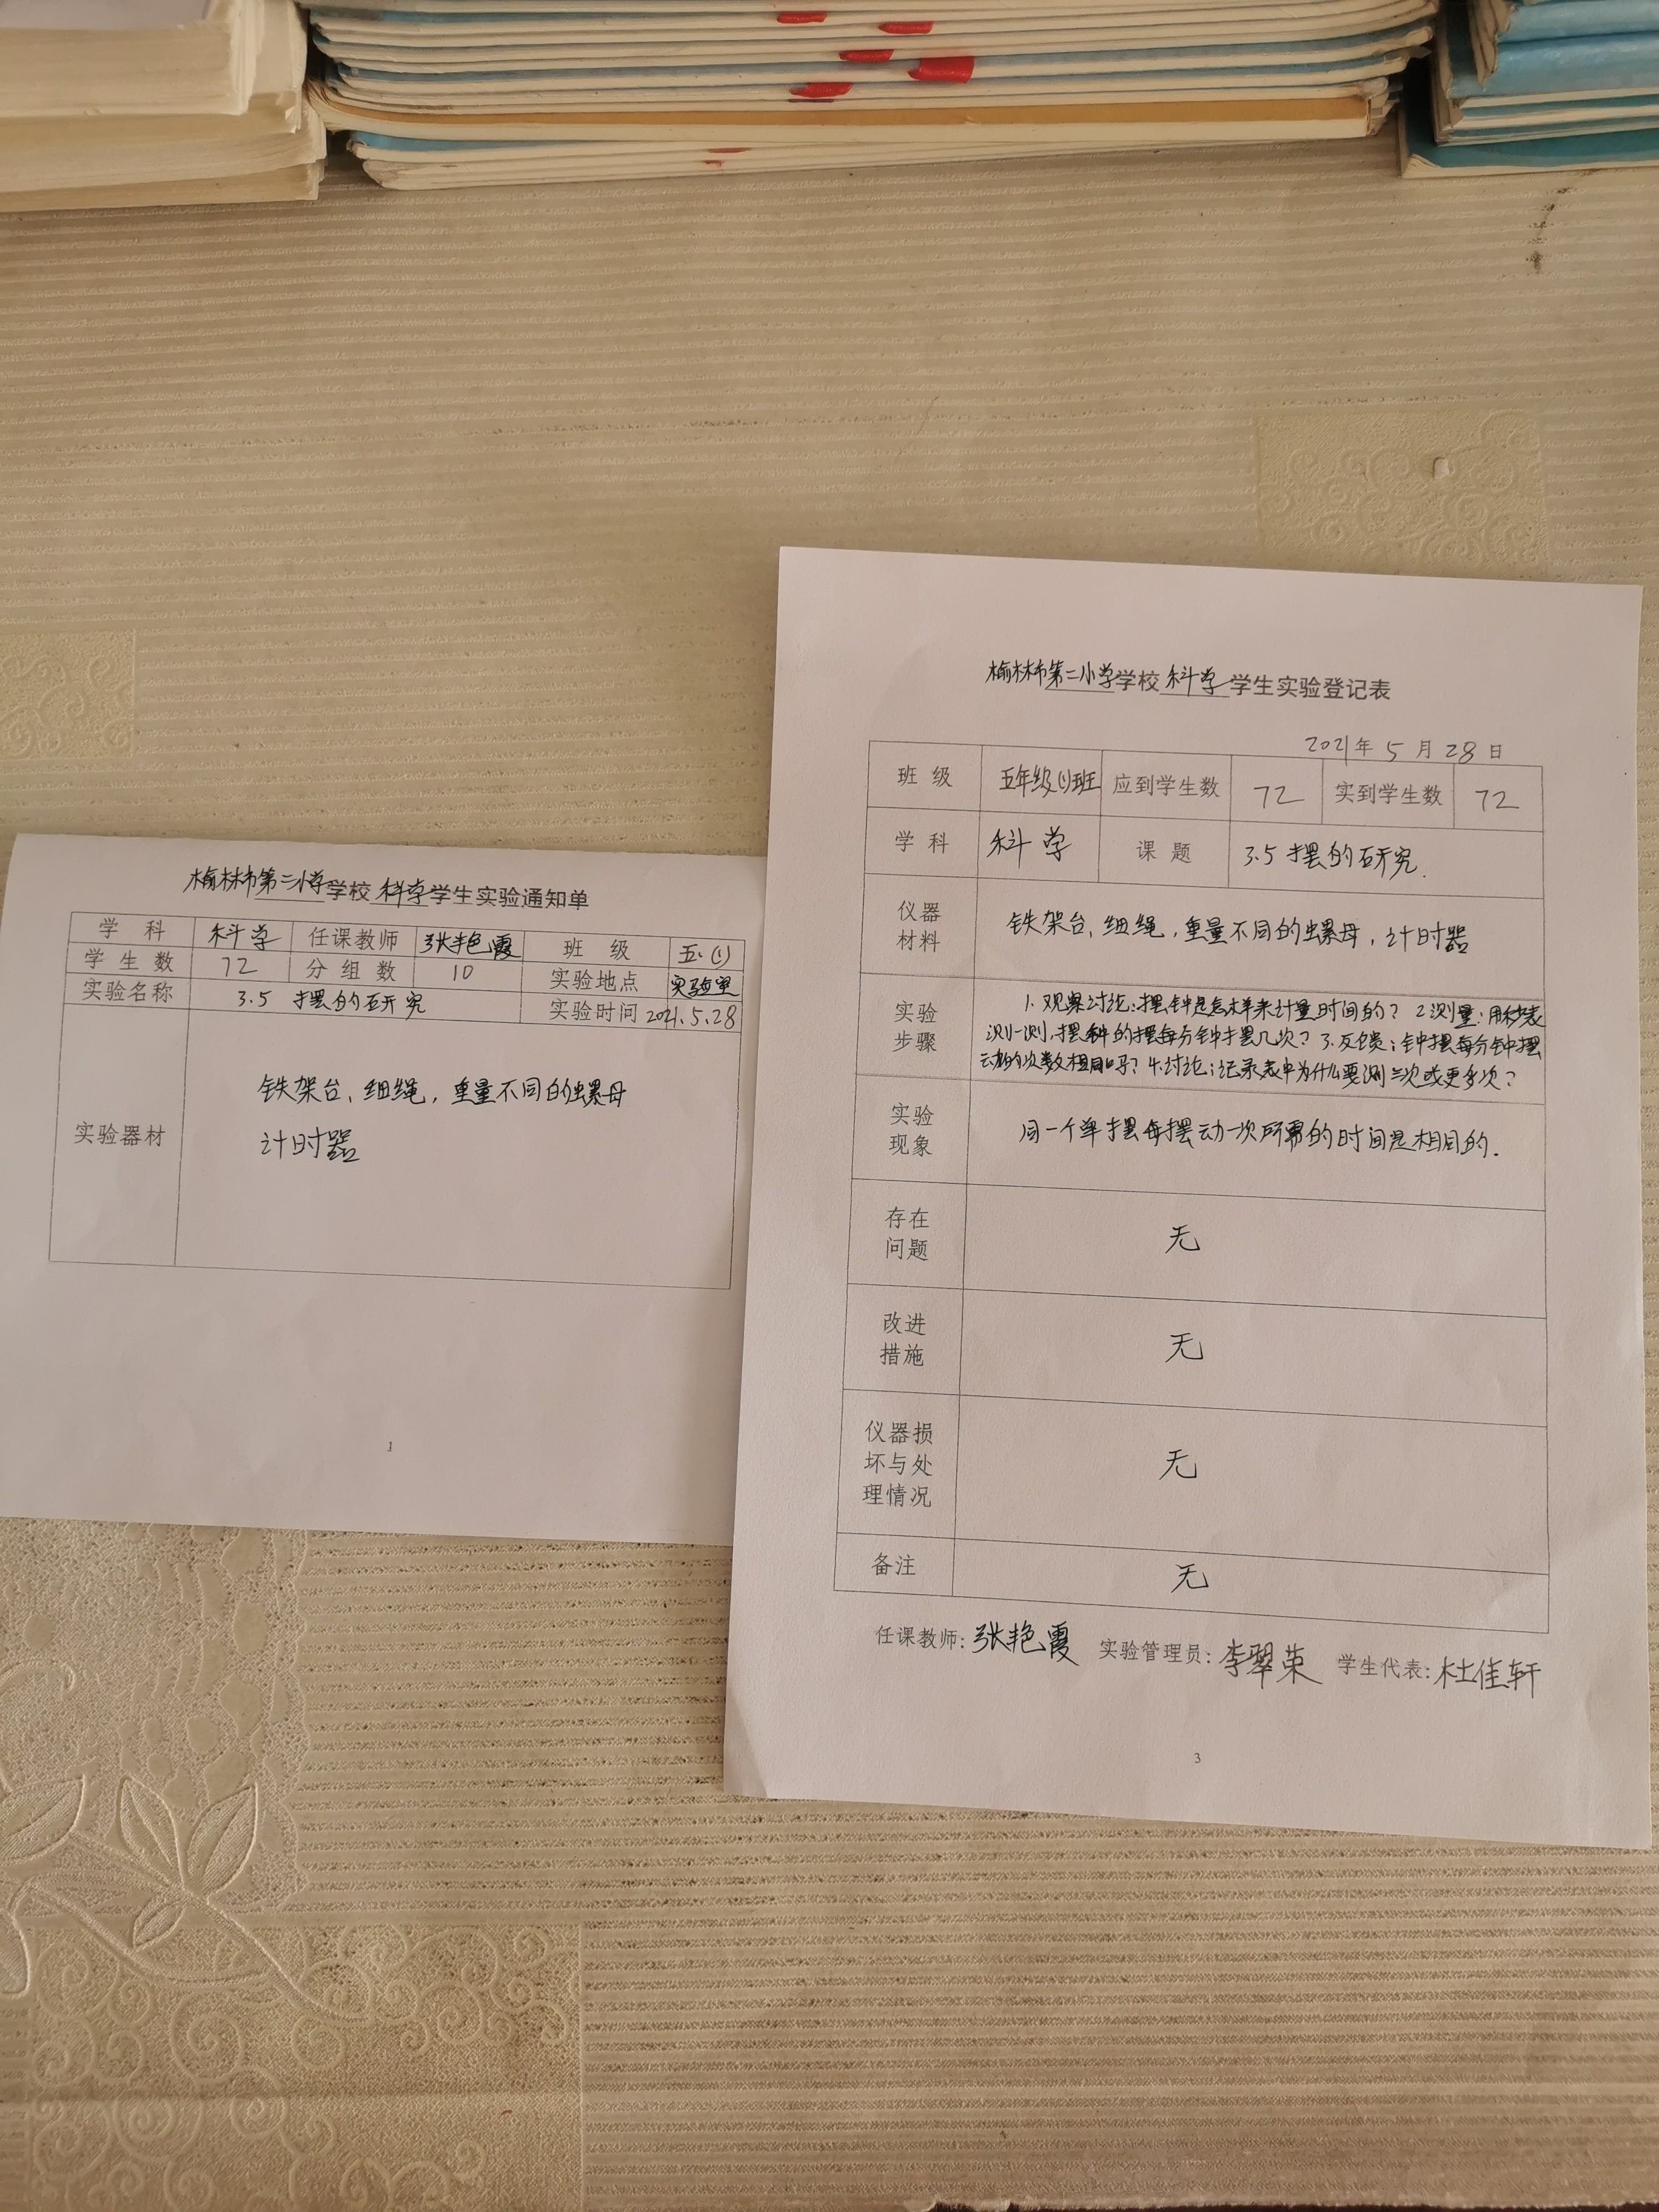 榆林市第二小学学校科学学生实验通知单
学科 科学 任课教师 张艳霞 班级 五.(1)
学生数 72 分组数 10 实验地点 实验室
实验名称 3.5 摆的研究 实验时间 2021.5.28
实验器材
铁架台、细绳,重量不同的螺母
计时器
1
榆林市第二小学学校科学学生实验登记表
2021年5月28日
班级 五年级(1)班 应到学生数 72 实到学生数 72
学科 科学 课题 3.5 摆的研究.
仪器
材料
铁架台、细绳,重量不同的螺母,计时器
实验
步骤
1.观察讨论:摆钟是怎样来计量时间的?2测量:用秒表
测一测,摆钟的摆每分钟摆几次?3.反馈:钟摆每分钟摆
动的次数相同吗?4.讨论:记录表中为什么要测三次或更多次?
实验
现象
同一个单摆每摆动一次所需的时间是相同的.
存在
问题
无
改进
措施
无
仪器损
坏与处
理情况
无
备注 无
任课教师:张艳霞 实验管理员:李翠荣 学生代表:杜佳轩
3